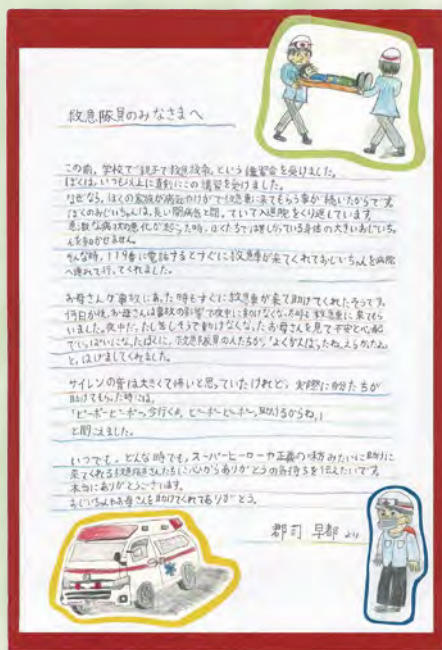 救急隊員のみなさまへ
この前、学校で「親子で救急救命」という講習会を受けました。
ぼくは、いつも以上に真剣にこの講習を受けました。
なぜなら、ぼくの家族が病気やけがで救急車に来てもらう事が続いたからです。
ぼくのおじいちゃんは、長い間病気と闘っていて入退院をくり返しています。
急激な病状の悪化が起こった時、ぼくたちでは苦しがっている身体の大きいおじいちゃ
んを動かせません。
そんな時、119番に電話するとすぐに救急車が来てくれておじいちゃんを病院
へ連れて行ってくれました。
お母さんが事故にあった時もすぐに救急車が来て助けてくれたそうです。
何日か後、お母さんは事故の影響で夜中に動けなくなった時に救急車に来てもら
いました。夜中だったし苦しそうで動けなくなったお母さんを見て不安と心配
でいっぱいになったぼくに、救急隊員の人たちが、「よくがんばったね、えらかったね。」
と、はげましてくれました。
サイレンの音は大きくて怖いと思っていたけれど、実際に自分たちが
助けてもらった時には、
「ピーポーピーポー、今行くよ、ピーポーピーポー、助けるからね。」
と聞こえました。
いつでも、どんな時でも、スーパーヒーローや正義の味方みたいに助けに
来てくれる救急隊さんたちに心からありがとうの気持ちを伝えたいです。
本当にありがとうございます。
おじいちゃんやお母さんを助けてくれてありがとう。
郡司 早都 より